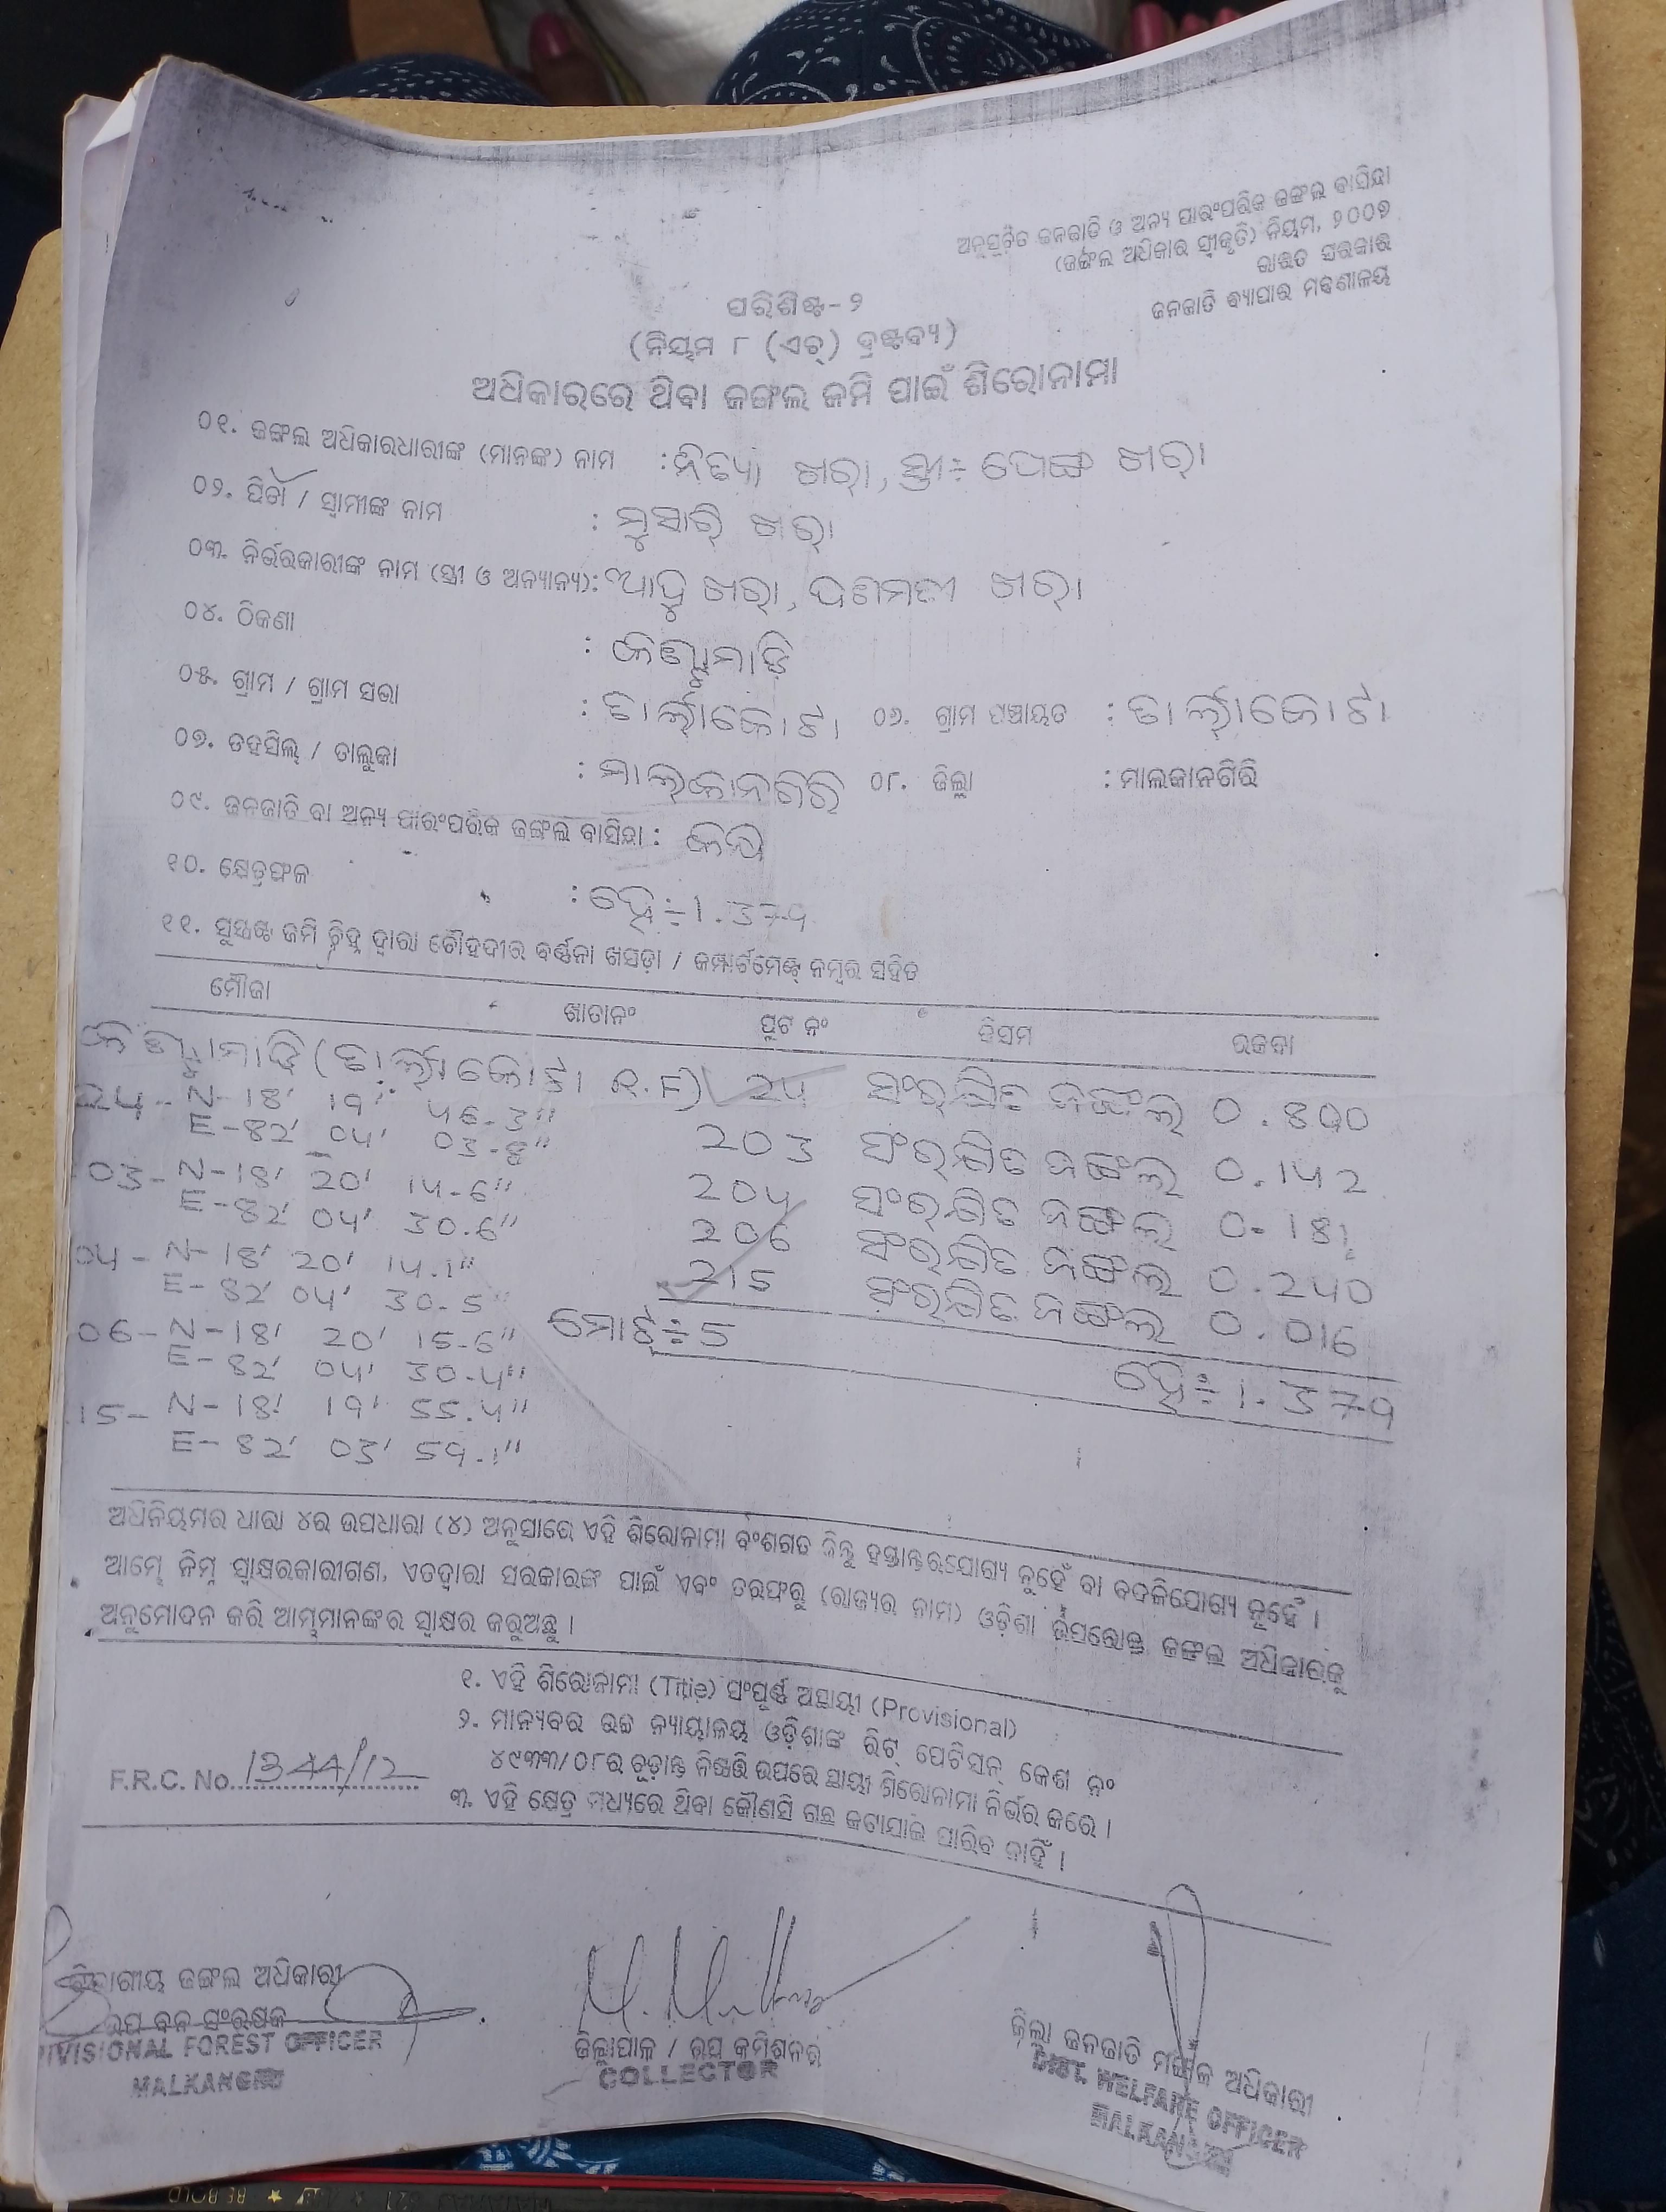 ଅନୁସୂଚିତ ଜନଜାତି ଓ ଅନ୍ୟ ପାରଂପରିକ ଜଙ୍ଗଲ ବାସିନ୍ଦା
(ଜଙ୍ଗଲ ଅଧିକାର ସ୍ୱୀକୃତି) ନିୟମ, ୨୦୦୭
ଭାରତ ସରକାର
ଜନଜାତି ବ୍ୟାପାର ମନ୍ତ୍ରଣାଳୟ
ପରିଶିଷ୍ଟ-୨
(ନିୟମ ୮ (ଏଚ୍) ଦ୍ରଷ୍ଟବ୍ୟ)
ଅଧିକାରରେ ଥିବା ଜଙ୍ଗଲ ଜମି ପାଇଁ ଶିରୋନାମା
୦୧. ଜଙ୍ଗଲ ଅଧିକାରଧାରୀଙ୍କ (ମାନଙ୍କ) ନାମ : ନିତ୍ୟା ଖରା, ସ୍ତ୍ରୀ÷ ଖରା
୦୨. ପିତା / ସ୍ୱାମୀଙ୍କ ନାମ : ମୁସାରି ଖରା
୦୩. ନିର୍ଭରକାରୀଙ୍କ ନାମ (ସ୍ତ୍ରୀ ଓ ଅନ୍ୟାନ୍ୟ): ଖରା, ଖରା
୦୪. ଠିକଣା :
୦୫. ଗ୍ରାମ / ଗ୍ରାମ ସଭା : ତାର୍ଲାକୋଟା ୦୬. ଗ୍ରାମ ପଞ୍ଚାୟତ : ତାର୍ଲାକୋଟା
୦୭. ତହସିଲ୍ / ତାଲୁକା : ମାଲକାନଗିରି ୦୮. ଜିଲ୍ଲା : ମାଲକାନଗିରି
୦୯. ଜନଜାତି ବା ଅନ୍ୟ ପାରଂପରିକ ଜଙ୍ଗଲ ବାସିନ୍ଦା : କନ୍ଧ
୧୦. କ୍ଷେତ୍ରଫଳ : ହେ÷1.379
୧୧. ସୁସ୍ପଷ୍ଟ ଜମି ଚିହ୍ନ ଦ୍ୱାରା ଚୌହଦୀର ବର୍ଣ୍ଣନା ଖସଡ଼ା / କମ୍ପାର୍ଟମେଣ୍ଟ ନମ୍ବର ସହିତ
ମୌଜା ଖାତାନଂ ପ୍ଲଟ ନଂ କିସମ ରକବା
(ତାର୍ଲାକୋଟା R.F) 24 ସଂରକ୍ଷିତ ଜଙ୍ଗଲ 0.800
24- N-18' 19' 46.3"
E-82' 04' 03.8" 203 ସଂରକ୍ଷିତ ଜଙ୍ଗଲ 0.142
03- N-18' 20' 14.6" 204 ସଂରକ୍ଷିତ ଜଙ୍ଗଲ 0.181
E-82' 04' 30.6" 206 ସଂରକ୍ଷିତ ଜଙ୍ଗଲ 0.240
04- N-18' 20' 14.1" 215 ସଂରକ୍ଷିତ ଜଙ୍ଗଲ 0.016
E-82' 04' 30.5"
06- N-18' 20' 15.6" ମୋଟ÷5 ହେ÷1.379
E-82' 04' 30.4"
15- N-18' 19' 55.4"
E-82' 03' 59.1"
ଅଧିନିୟମର ଧାରା ୪ର ଉପଧାରା (୪) ଅନୁସାରେ ଏହି ଶିରୋନାମା ବଂଶଗତ କିନ୍ତୁ ହସ୍ତାନ୍ତରଯୋଗ୍ୟ ନୁହେଁ ବା ବଦଳିଯୋଗ୍ୟ ନୁହେଁ ।
ଆମ୍ଭେ ନିମ୍ନ ସ୍ୱାକ୍ଷରକାରୀଗଣ, ଏତଦ୍ୱାରା ସରକାରଙ୍କ ପାଇଁ ଏବଂ ତରଫରୁ (ରାଜ୍ୟର ନାମ) ଓଡ଼ିଶା ଉପରୋକ୍ତ ଜଙ୍ଗଲ ଅଧିକାରକୁ
ଅନୁମୋଦନ କରି ଆମ୍ଭମାନଙ୍କର ସ୍ୱାକ୍ଷର କରୁଅଛୁ ।
୧. ଏହି ଶିରୋନାମା (Title) ସଂପୂର୍ଣ୍ଣ ଅସ୍ଥାୟୀ (Provisional)
୨. ମାନ୍ୟବର ଉଚ୍ଚ ନ୍ୟାୟାଳୟ ଓଡ଼ିଶାଙ୍କ ରିଟ୍ ପେଟିସନ୍ କେଶ ନଂ
୪୯୩୩/୦୮ର ଚୂଡ଼ାନ୍ତ ନିଷ୍ପତ୍ତି ଉପରେ ସ୍ଥାୟୀ ଶିରୋନାମା ନିର୍ଭର କରେ ।
F.R.C. No. 1344/12
୩. ଏହି କ୍ଷେତ୍ର ମଧ୍ୟରେ ଥିବା କୌଣସି ଗଛ କଟାଯାଇ ପାରିବ ନାହିଁ ।
ବିଭାଗୀୟ ଜଙ୍ଗଲ ଅଧିକାରୀ
ଉପ ବନ ସଂରକ୍ଷକ
DIVISIONAL FOREST OFFICER
MALKANGIRI
ଜିଲ୍ଲାପାଳ / ଉପ କମିଶନର
COLLECTOR
ଜିଲ୍ଲା ଜନଜାତି ମଙ୍ଗଳ ଅଧିକାରୀ
DIST. WELFARE OFFICER
MALKANGIRI